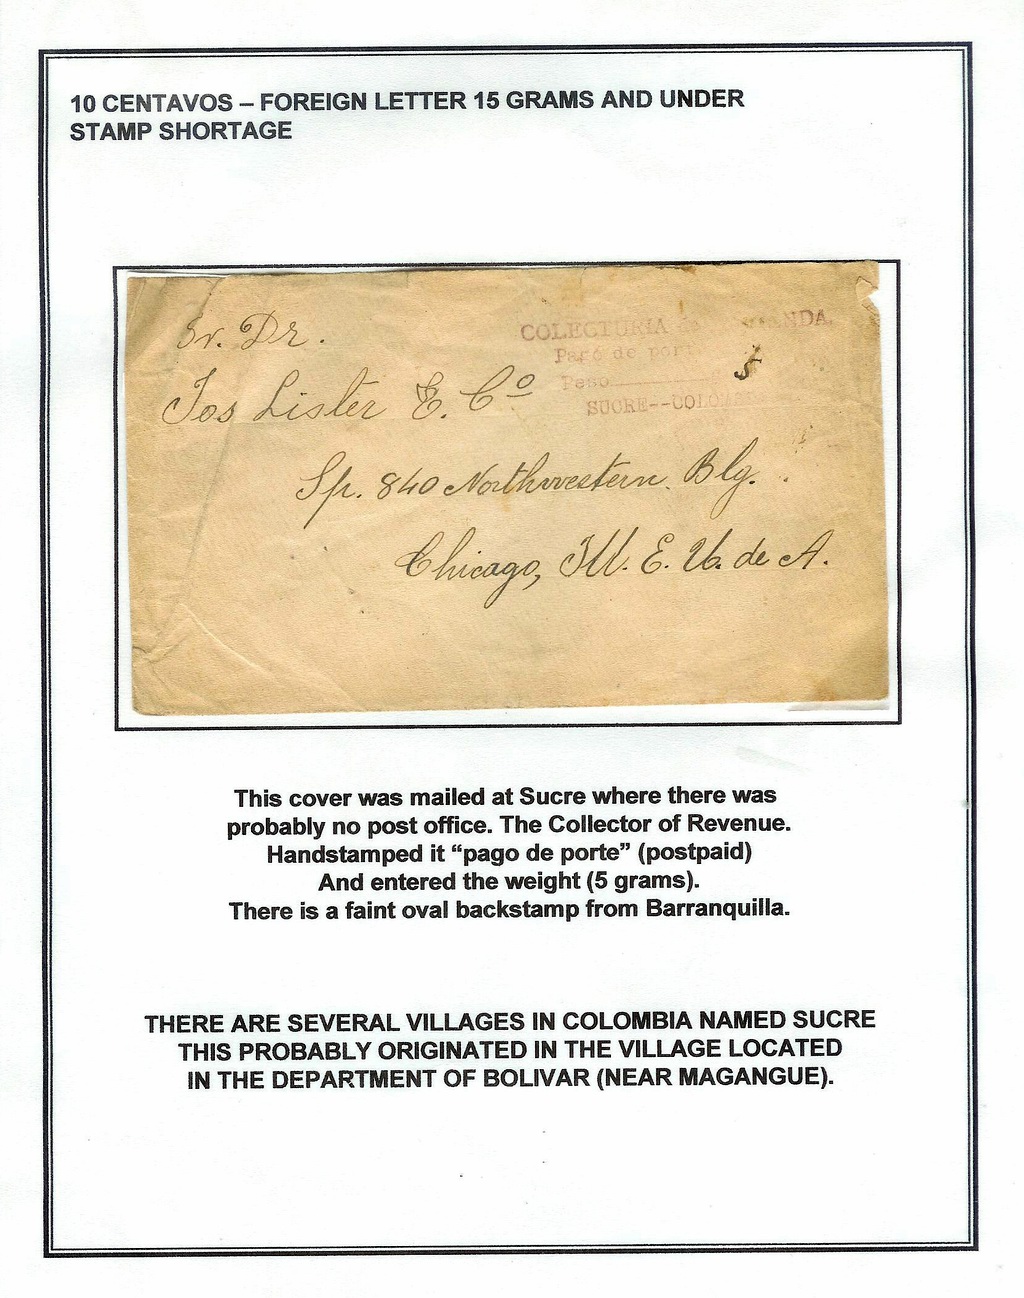 10 CENTAVOS – FOREIGN LETTER 15 GRAMS AND UNDER
STAMP SHORTAGE
Sr. Dr.
COLECTURIA
Pago de port
Jos Lister E. Cº
Peso 5
SUCRE--COLOM
Sp. 840 Northwestern Blg.
Chicago, Ill. E. U. de A.
This cover was mailed at Sucre where there was
probably no post office. The Collector of Revenue.
Handstamped it “pago de porte” (postpaid)
And entered the weight (5 grams).
There is a faint oval backstamp from Barranquilla.
THERE ARE SEVERAL VILLAGES IN COLOMBIA NAMED SUCRE
THIS PROBABLY ORIGINATED IN THE VILLAGE LOCATED
IN THE DEPARTMENT OF BOLIVAR (NEAR MAGANGUE).